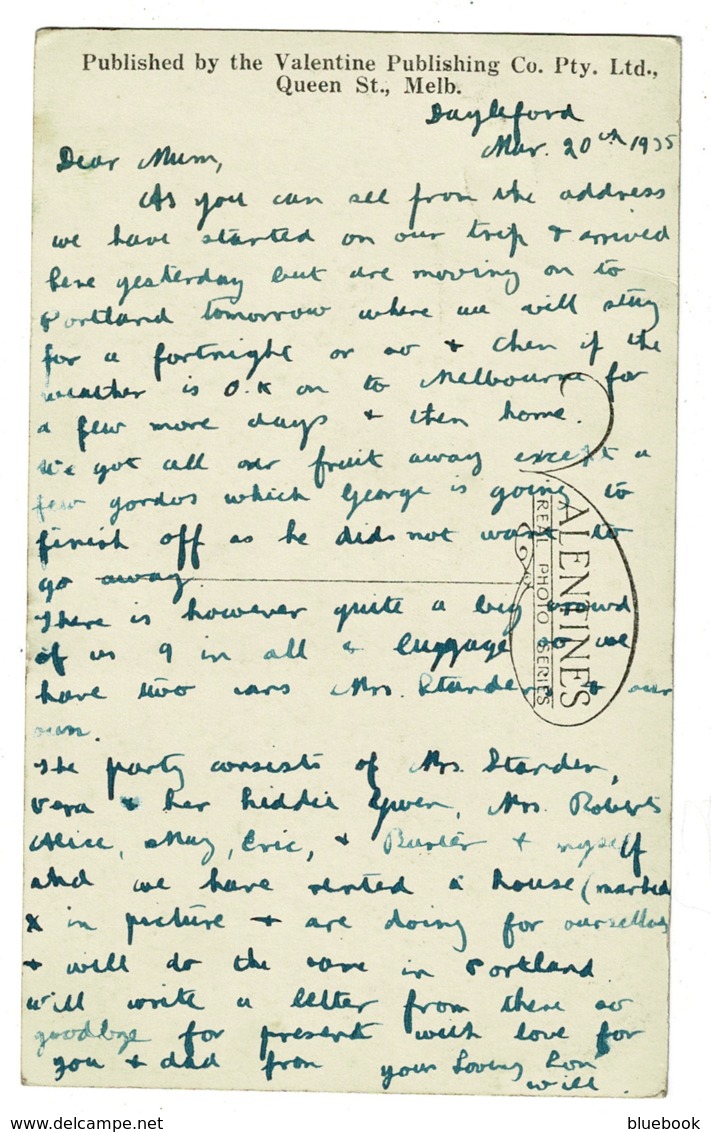 Published by the Valentine Publishing Co. Pty. Ltd.,
Queen St., Melb.
Dayleford
Mar. 20th 1935
Dear Mum,
As you can see from the address
we have started on our trip & arrived
here yesterday but are moving on to
Portland tomorrow where we will stay
for a fortnight or so & then if the
weather is O.K on to Melbourne for
a few more days & then home.
We got all our fruit away except a
few gordos which George is going to
finish off as he did not want to
go away
There is however quite a big crowd
of us 9 in all & luggage so we
have two cars Mrs. Standens & our
own.
The party consists of Mrs. Standen,
Vera & her kiddie Gwen, Mrs. Roberts
Alice, May, Eric, & Buster & myself
and we have rented a house (marked
X in picture & are doing for ourselves
& will do the same in Portland
will write a letter from there so
goodbye for present with love for
you & dad from your Loving Son
Will.
VALENTINE'S
REAL PHOTO SERIES
bluebook